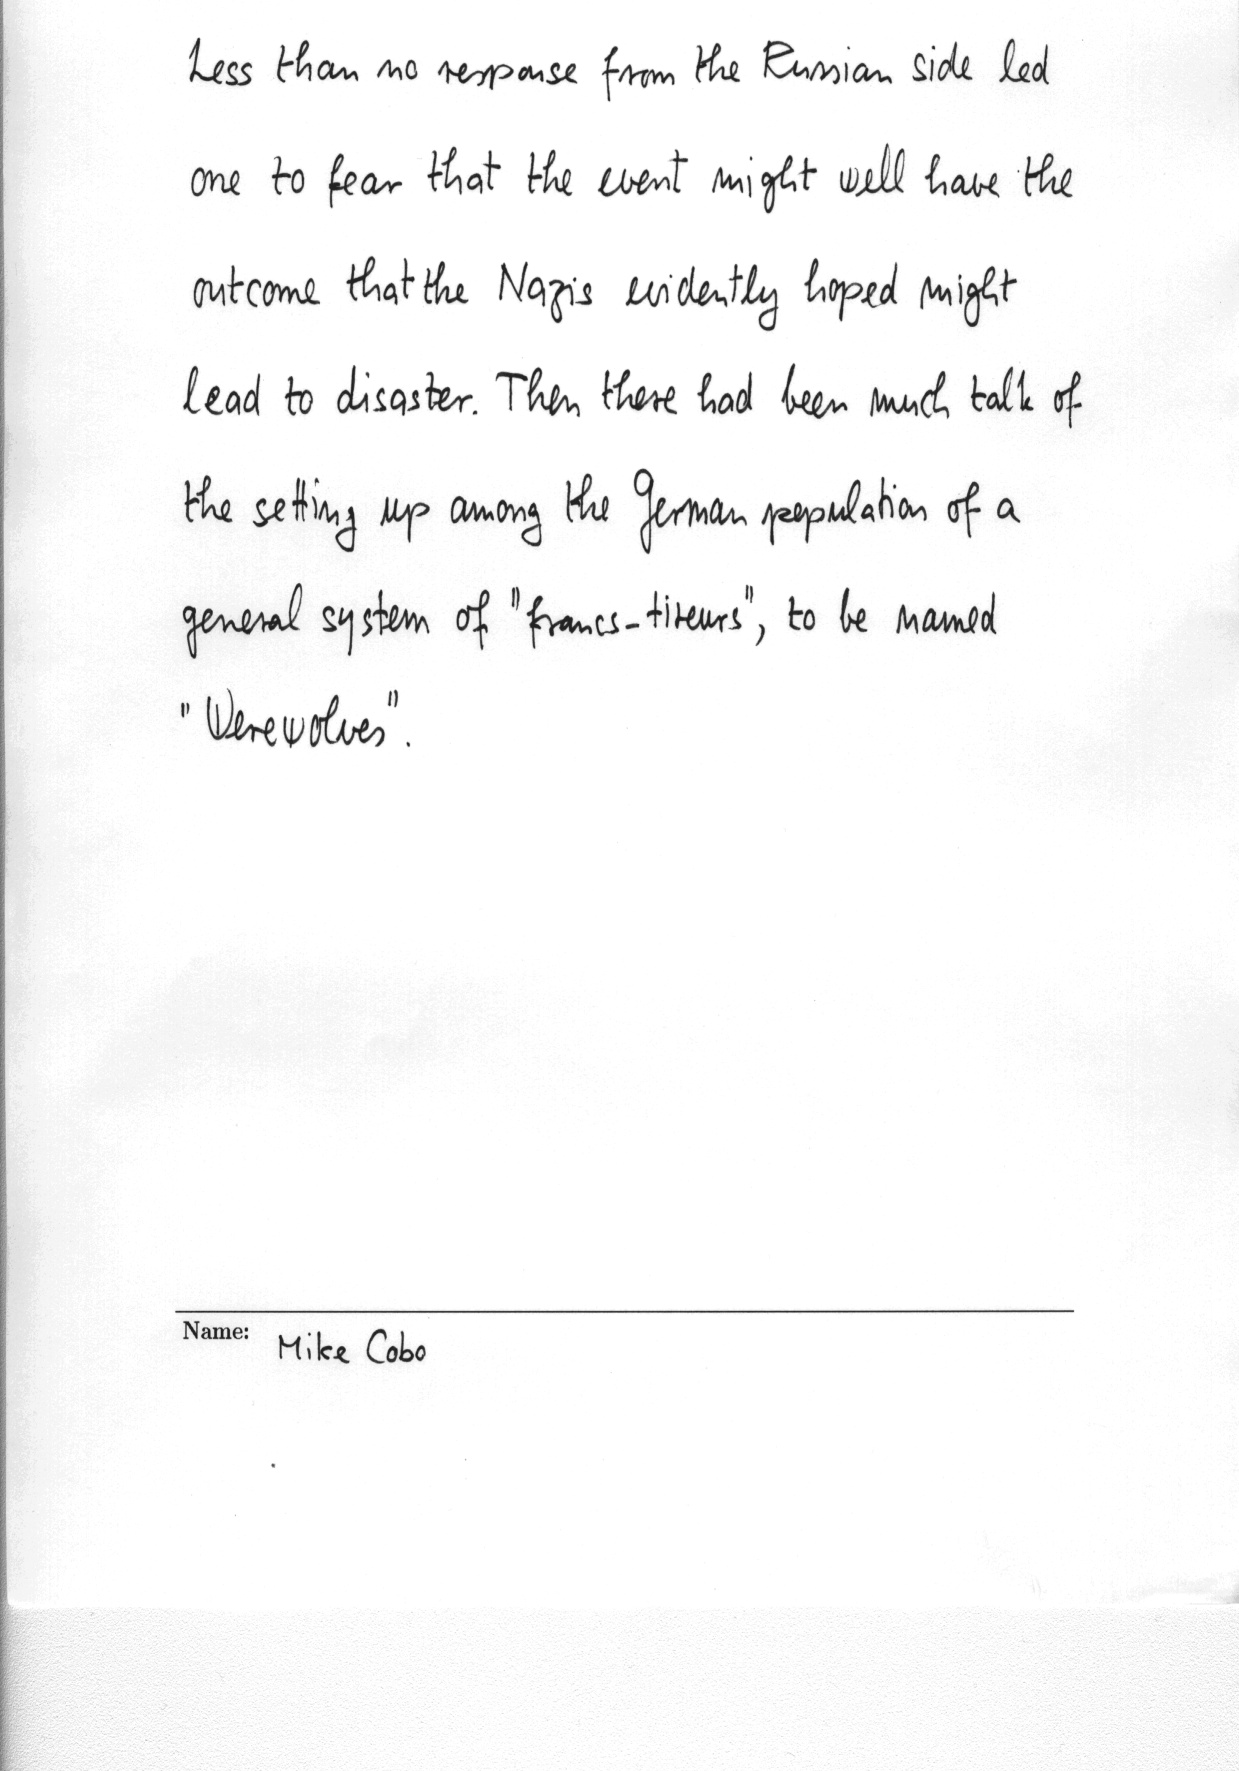 Less than no response from the Russian side led
one to fear that the event might well have the
outcome that the Nazis evidently hoped might
lead to disaster. Then there had been much talk of
the setting up among the German population of a
general system of "francs-tireurs", to be named
"Werewolves".
Name: Mike Cobo